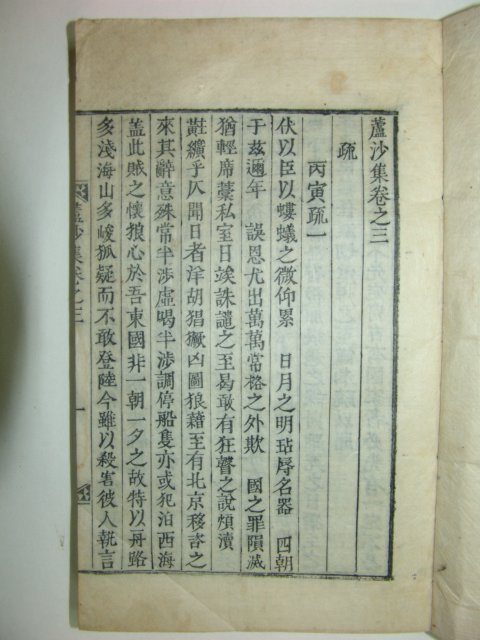 蘆沙集卷之三
疏
丙寅疏一
伏以臣以螻蟻之微仰累 日月之明玷辱名器 四朝
于玆邇年 誤恩尤出萬萬常格之外欺 國之罪隕滅
猶輕席藁私室日竢誅譴之至曷敢有狂瞽之說煩瀆
黈纊乎仄聞日者洋胡猖獗凶圖狼藉至有北京移咨之
來其辭意殊常半涉虛喝半涉調停船隻亦或犯泊西海
盖此賊之懷狼心於吾東國非一朝一夕之故特以舟路
多淺海山多峻狐疑而不敢登陸今雖以殺害彼人執言
蘆沙集卷之三
一